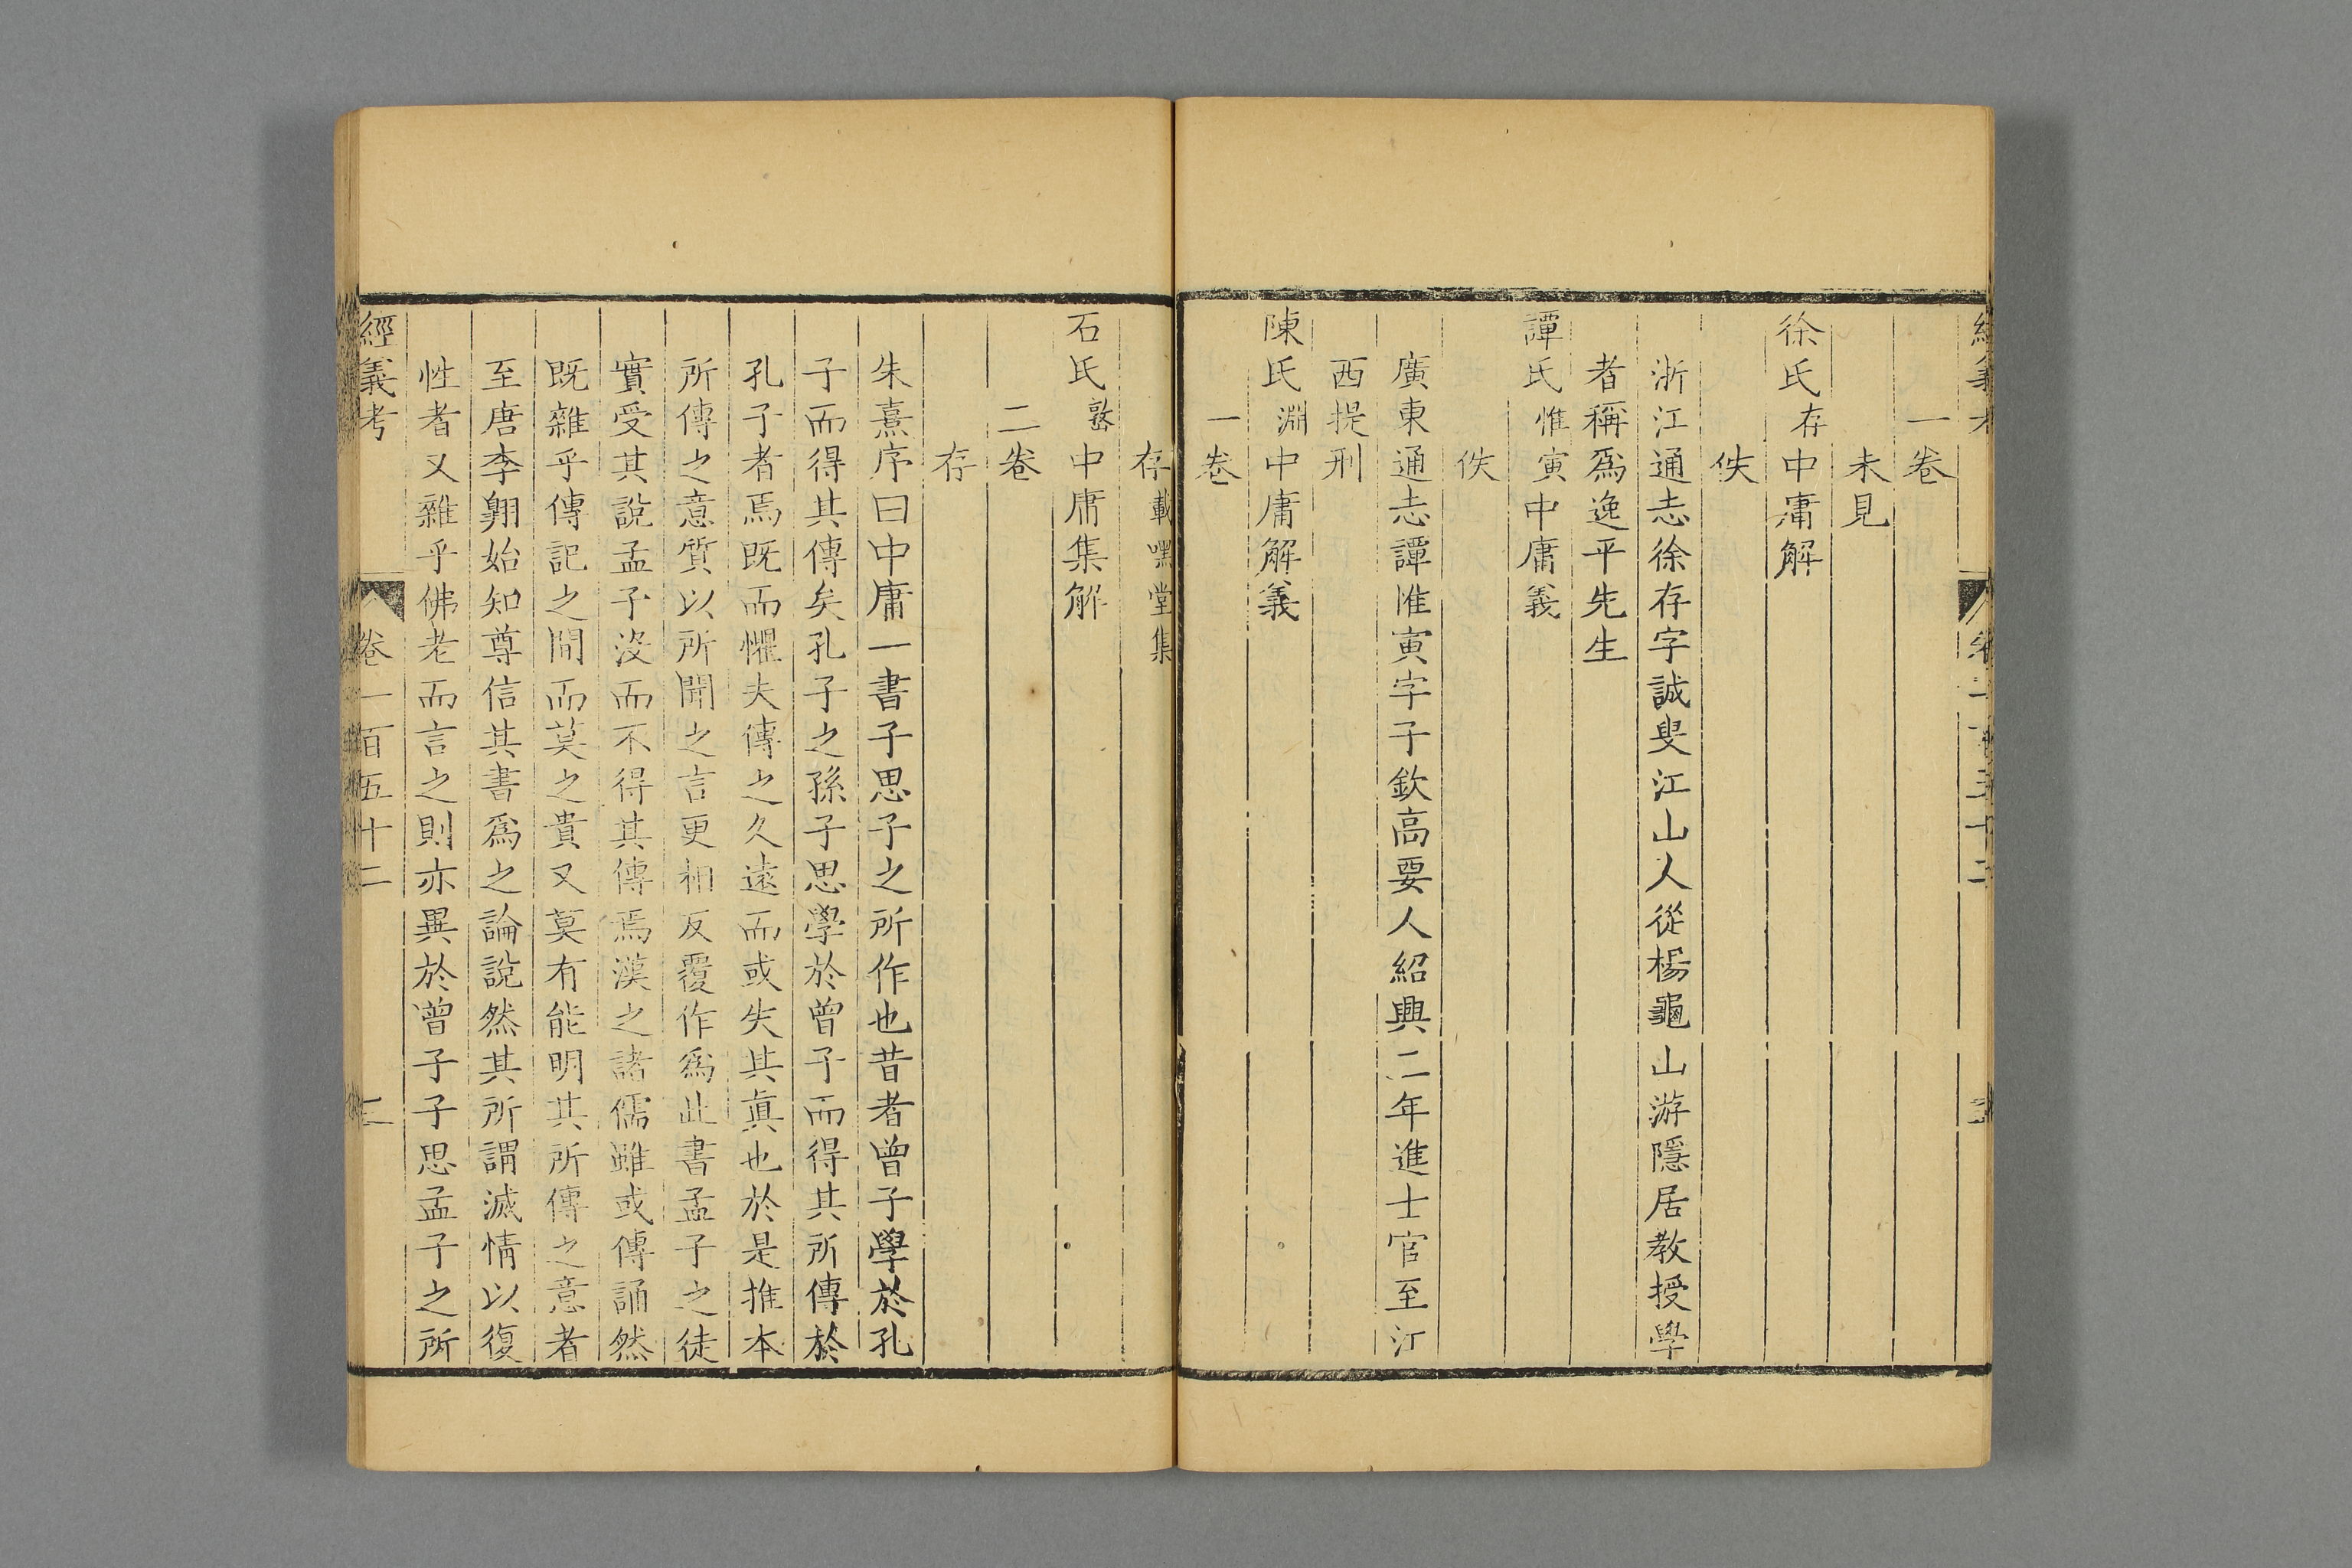 一卷
未見
徐氏存中庸解
佚
浙江通志徐存字誠叟江山人從楊龜山游隱居教授學
者稱爲逸平先生
譚氏惟寅中庸義
佚
廣東通志譚惟寅字子欽高要人紹興二年進士官至江
西提刑
陳氏淵中庸解義
一卷
存載嘿堂集
石氏𡼖中庸集解
二卷
存
朱熹序曰中庸一書子思子之所作也昔者曾子學於孔
子而得其傳矣孔子之孫子思學於曾子而得其所傳於
孔子者焉既而懼夫傳之久遠而或失其眞也於是推本
所傳之意質以所聞之言更相反覆作爲此書孟子之徒
實受其說孟子沒而不得其傳焉漢之諸儒雖或傳誦然
既雜乎傳記之間而莫之貴又莫有能明其所傳之意者
至唐李翱始知尊信其書爲之論說然其所謂滅情以復
性者又雜乎佛老而言之則亦異於曾子子思孟子之所
經義考 卷一百五十二 二